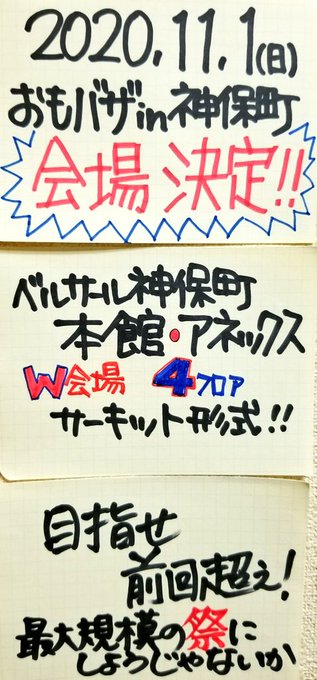 2020.11.1(日)
おもバザin神保町
会場決定!!
ベルサール神保町
本館・アネックス
W会場 4フロア
サーキット形式!!
目指せ
前回超え!
最大規模の祭に
しようじゃないか